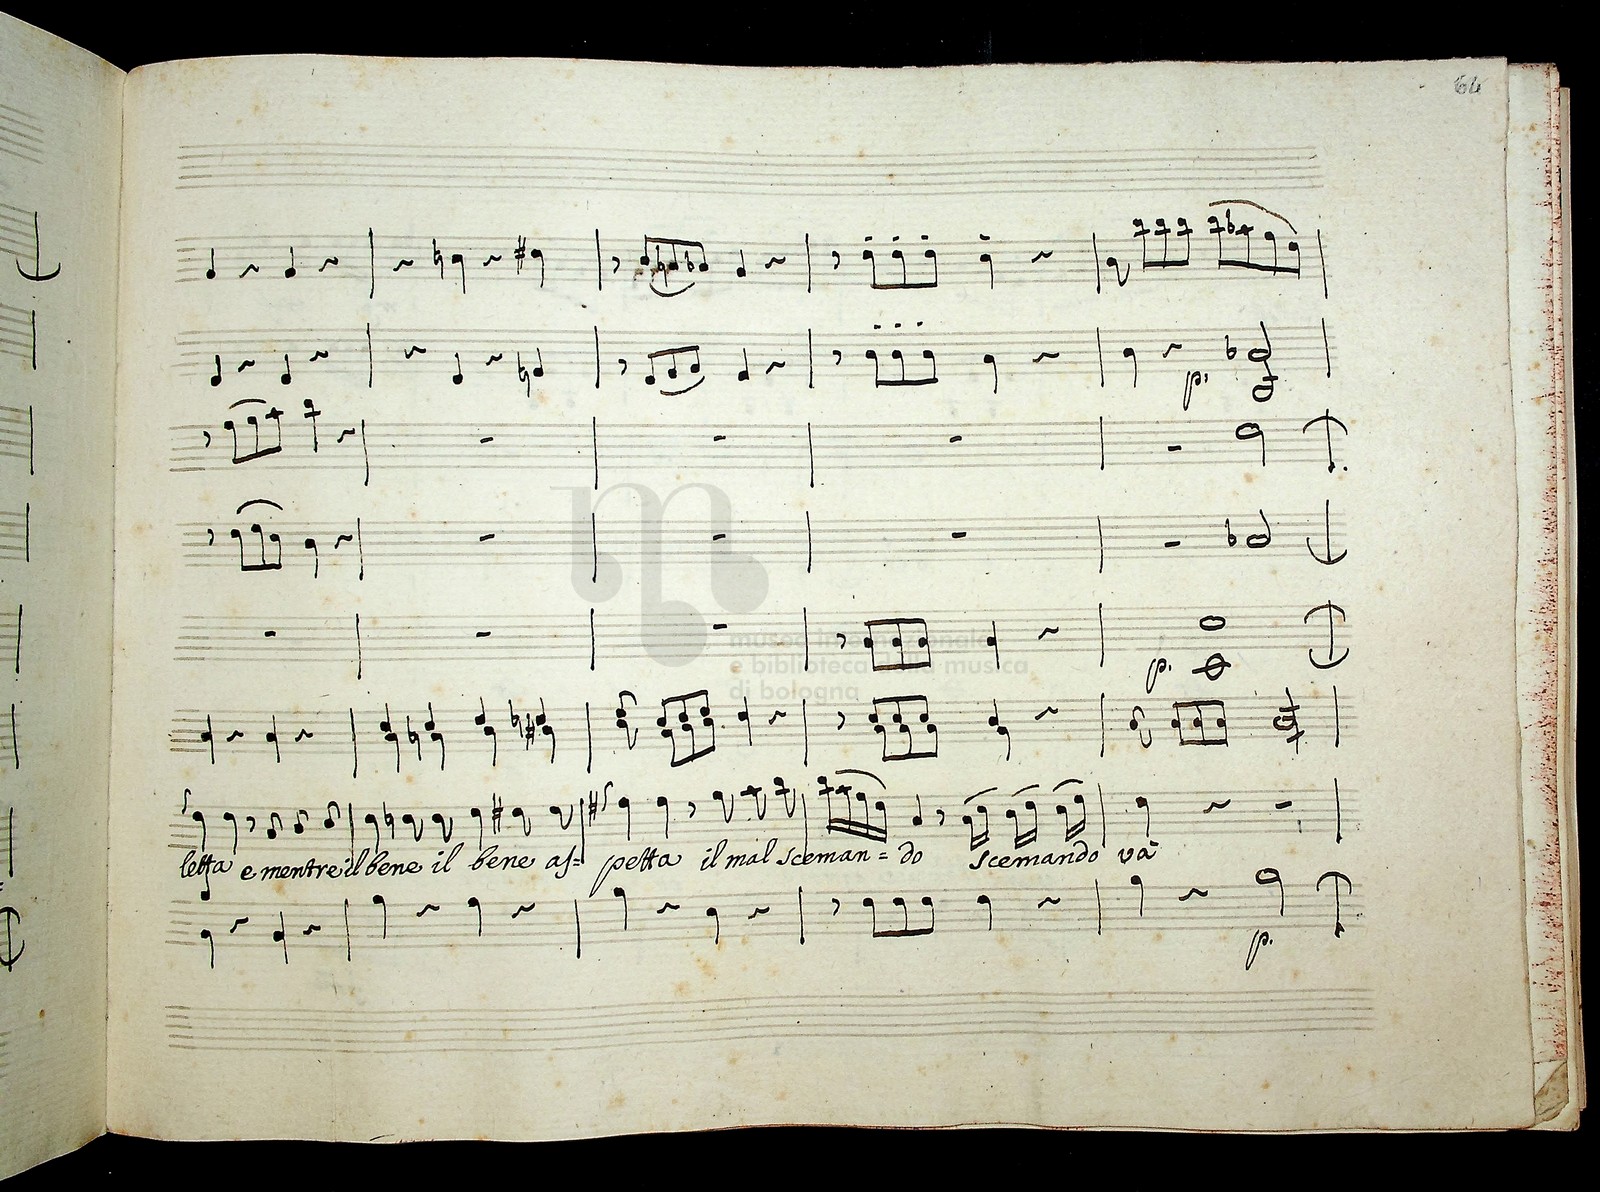 64
p.
p.
museo internazionale
e biblioteca della musica
di bologna
letta e mentre il bene il bene as= petta il mal sceman= do scemando và
p.